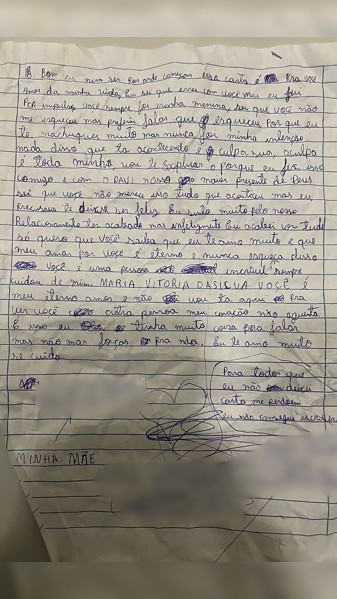 Bom eu nem sei por onde começar essa carta é pra você
Amor da minha vida, Eu sei que errei com você mas eu fui
Por impulso, você sempre foi minha menina, sei que você não
me esqueceu mas prefiro falar que esqueceu Porque eu
te machuquei muito mas nunca foi minha intenção
nada disso que ta acontecendo é culpa sua, a culpa
é toda minha vou te explicar o porque eu fiz isso
comigo e com o DAVI nosso maior presente de Deus
sei que você não merece isso tudo que aconteceu mas eu
precisava te deixar ser feliz Eu sinto muito pelo nosso
Relacionamento ter acabado mas infelizmente Eu acabei com tudo
só quero que você saiba que eu te amo muito e que
meu amor por você é eterno e nunca esqueça disso
você é uma pessoa incrível sempre
cuidou de mim. MARIA VITORIA DASILVA VOÇÊ É
meu eterno amor e não vou ta aqui Pra
ver você com outra pessoa meu coração não aguenta
É isso eu tinha muita coisa pra falar
mas não mas forças Pra nda. Eu te amo muito
se cuida
Para todos que
eu não deixei
carta me perdoem
eu não consegui escrever
MINHA MÃE